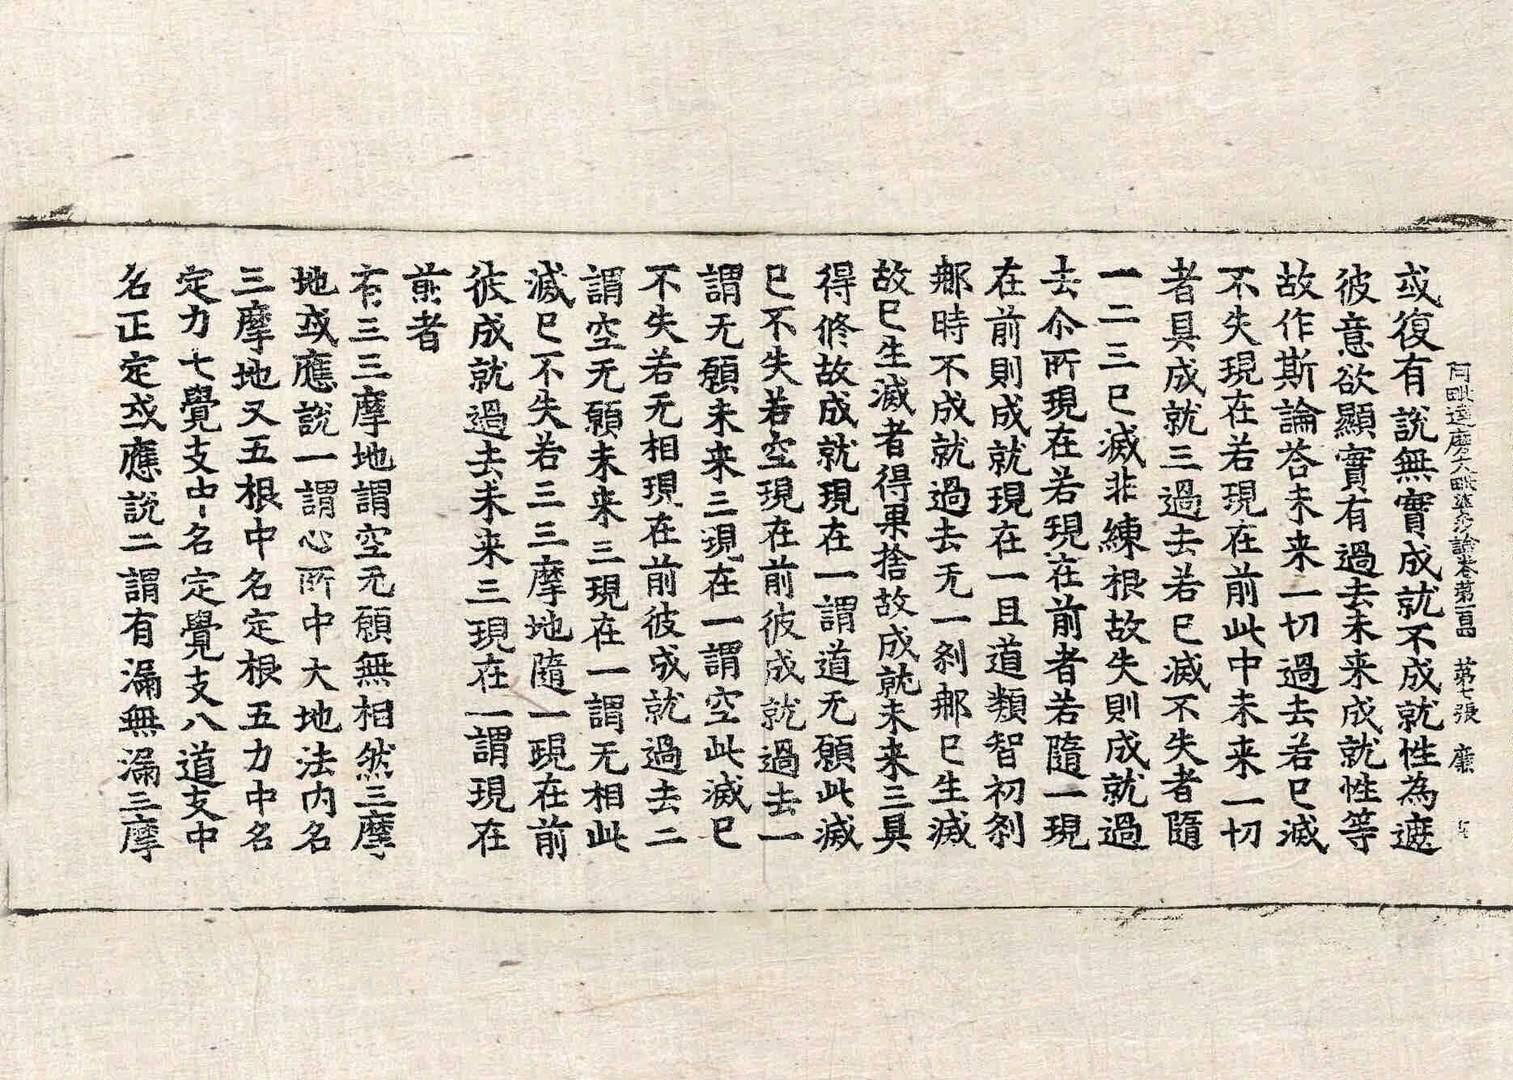 阿毗達磨大毗婆沙論卷第一百四 第七張 廉
或復有說無實成就不成就性為遮
彼意欲顯實有過去未来成就性等
故作斯論荅未来一切過去若已滅
不失現在若現在前此中未来一切
者具成就三過去若已滅不失者隨
一二三已滅非練根故失則成就過
去尒所現在若現在前者若隨一現
在前則成就現在一且道類智初剎
那時不成就過去无一剎那已生滅
故已生滅者得果捨故成就未来三具
得修故成就現在一謂道无願此滅
已不失若空現在前彼成就過去一
謂无願未来三現在一謂空此滅已
不失若无相現在前彼成就過去二
謂空无願未来三現在一謂无相此
滅已不失若三三摩地隨一現在前
彼成就過去未来三現在一謂現在
前者
有三三摩地謂空无願無相然三摩
地或應說一謂心所中大地法內名
三摩地又五根中名定根五力中名
定力七覺支中名定覺支八道支中
名正定或應說二謂有漏無漏三摩